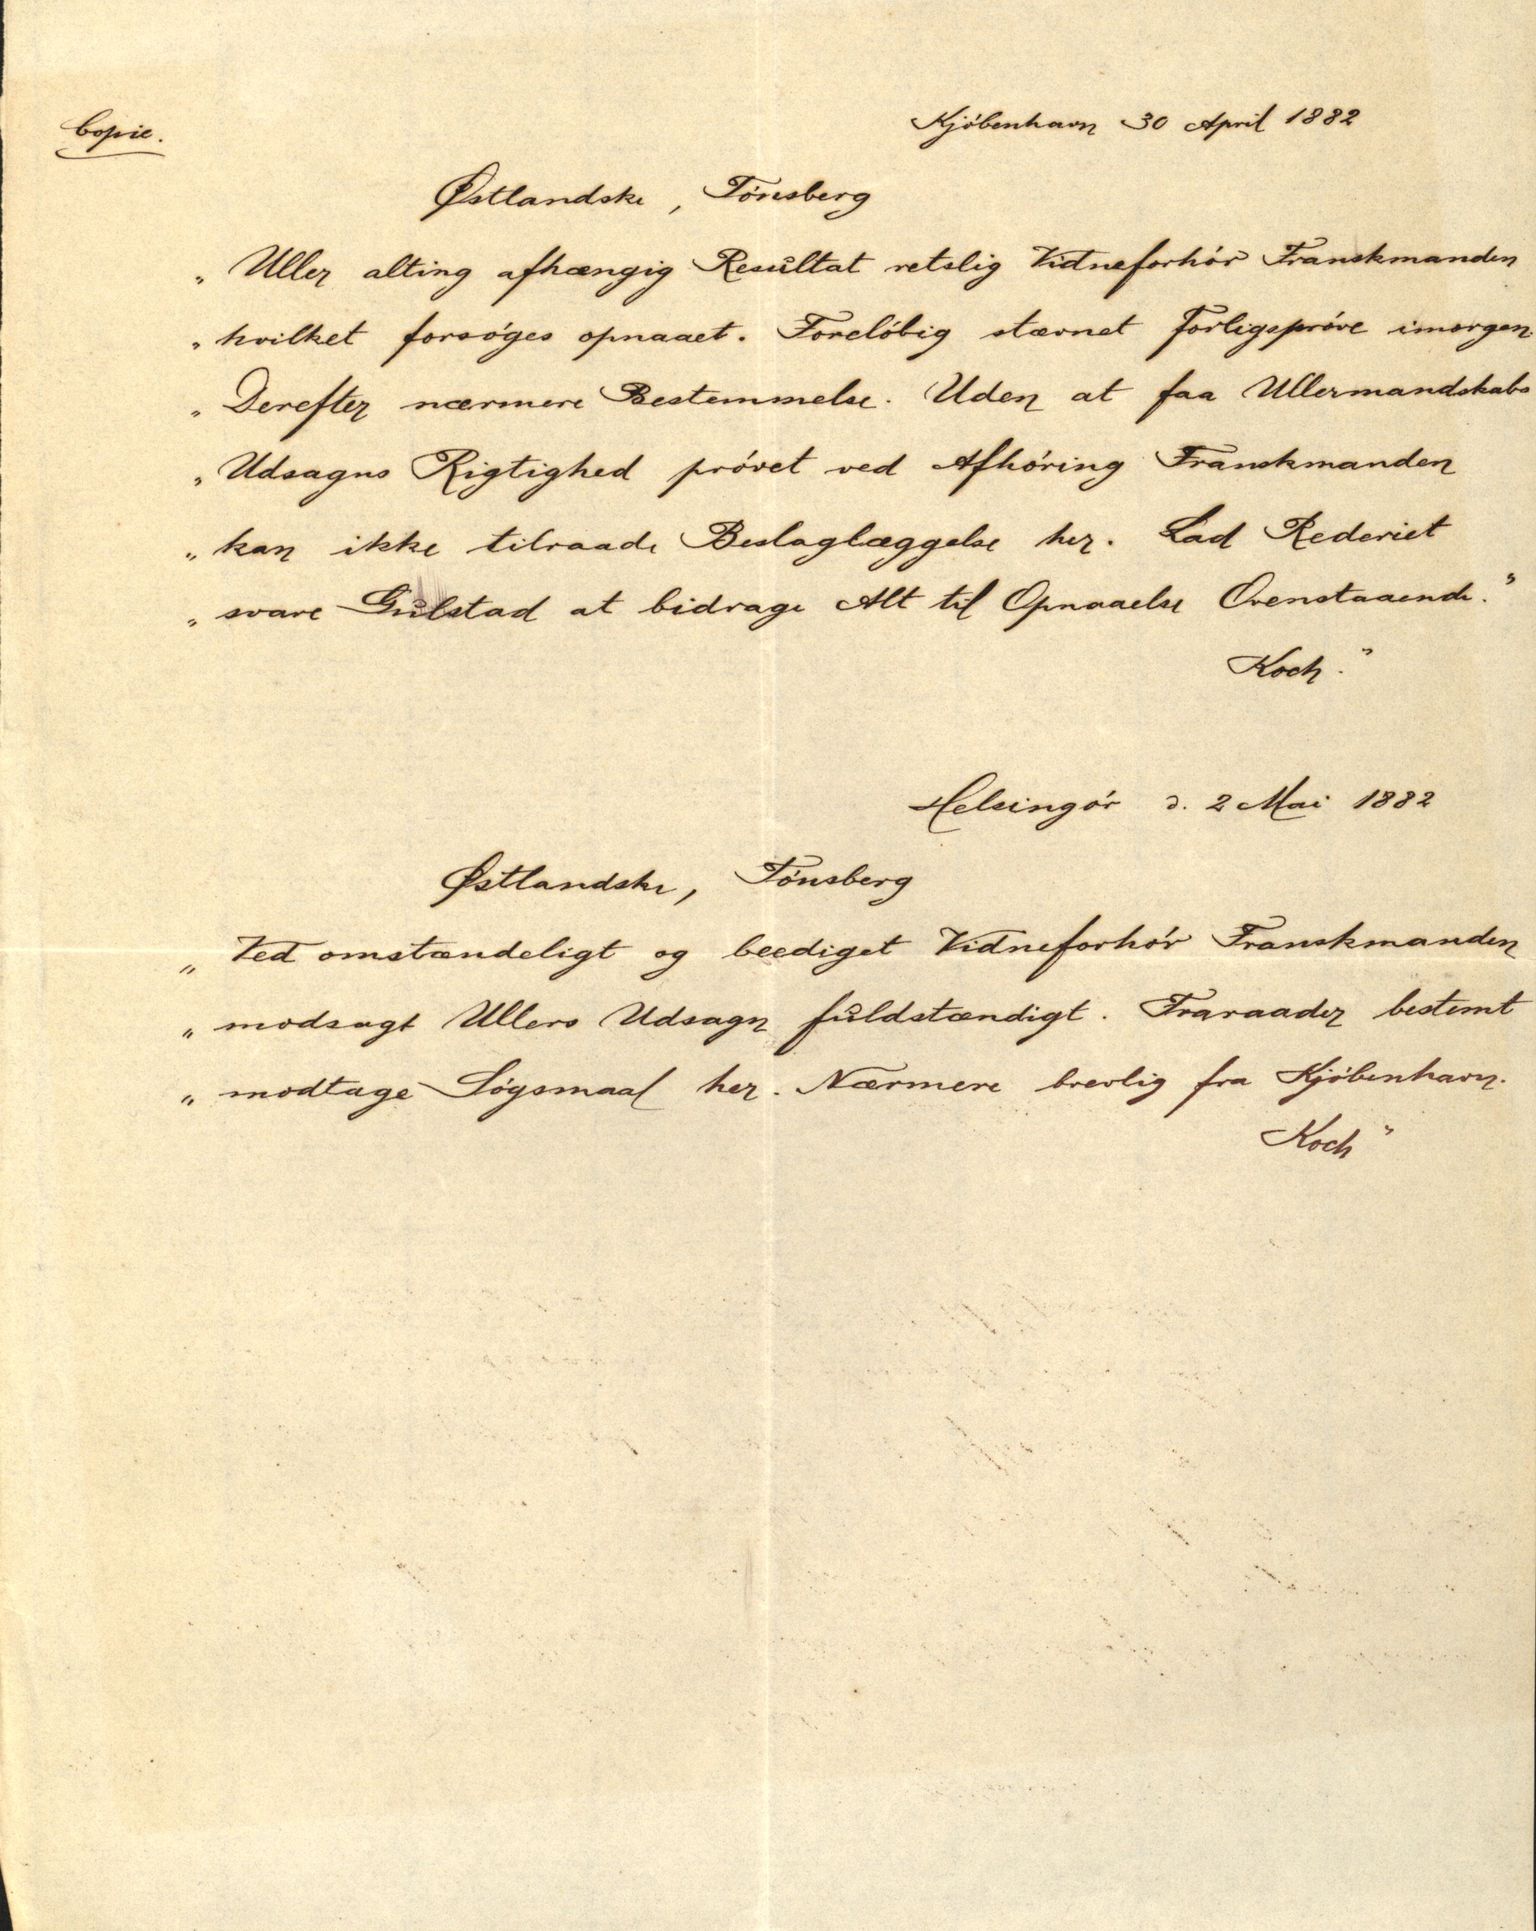 Copie.
Kjöbenhavn 30 April 1882
Østlandske, Tönsberg
„ Uller alting afhængig Resultat retslig Vidneforhör Franskmanden
„ hvilket forsöges opnaaet. Forelöbig stævnet Forligspröve imorgen.
„ Derefter nærmere Bestemmelse. Uden at faa Ullermandskabs
„ Udsagns Rigtighed prövet ved Afhöring Franskmanden
„ kan ikke tilraade Beslaglæggelse her. Lad Rederiet
„ svare Gulstad at bidrage Alt til Opnaaelse Ovenstaaende."
Koch."
Helsingör d. 2 Mai 1882
Østlandske, Tönsberg
„ Ved omstændeligt og beediget Vidneforhör Franskmanden
„ modsagt Ullers Udsagn fuldstændigt. Fraraader bestemt
„ modtage Sögsmaal her. Nærmere brevlig fra Kjöbenhavn.
Koch"